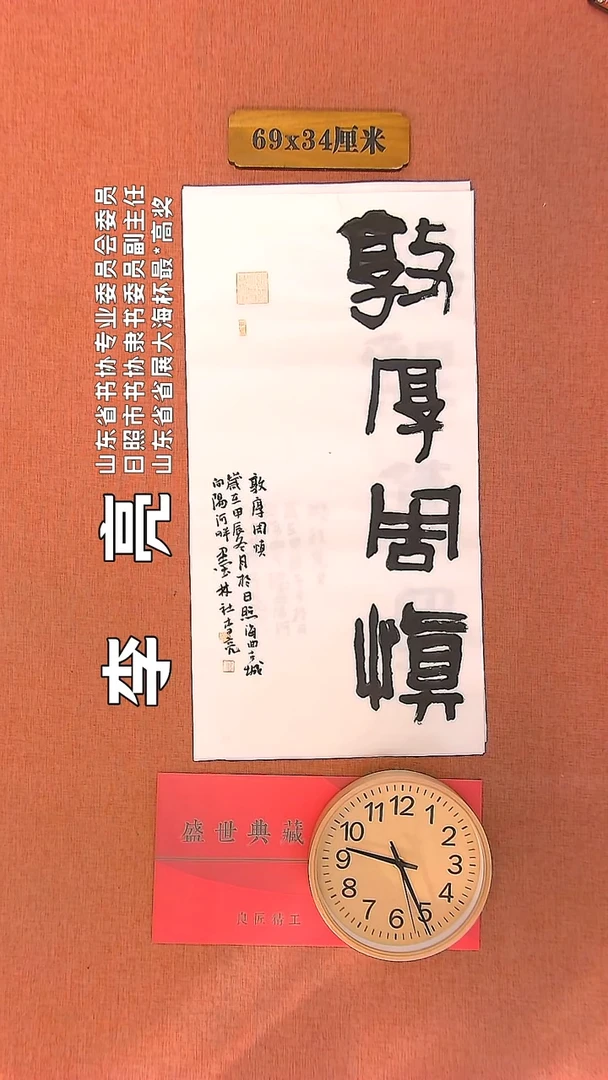 69x34厘米
山东省书协专业委员会委员
日照市书协隶书委员副主任
山东省省展大海杯最*高奖
李亮
敦厚周慎
敦厚周慎
岁在甲辰冬月于日照海曲古城
向阳河畔墨林社李亮
盛世典藏
良匠精工
12
1
2
3
4
5
6
7
8
9
10
11